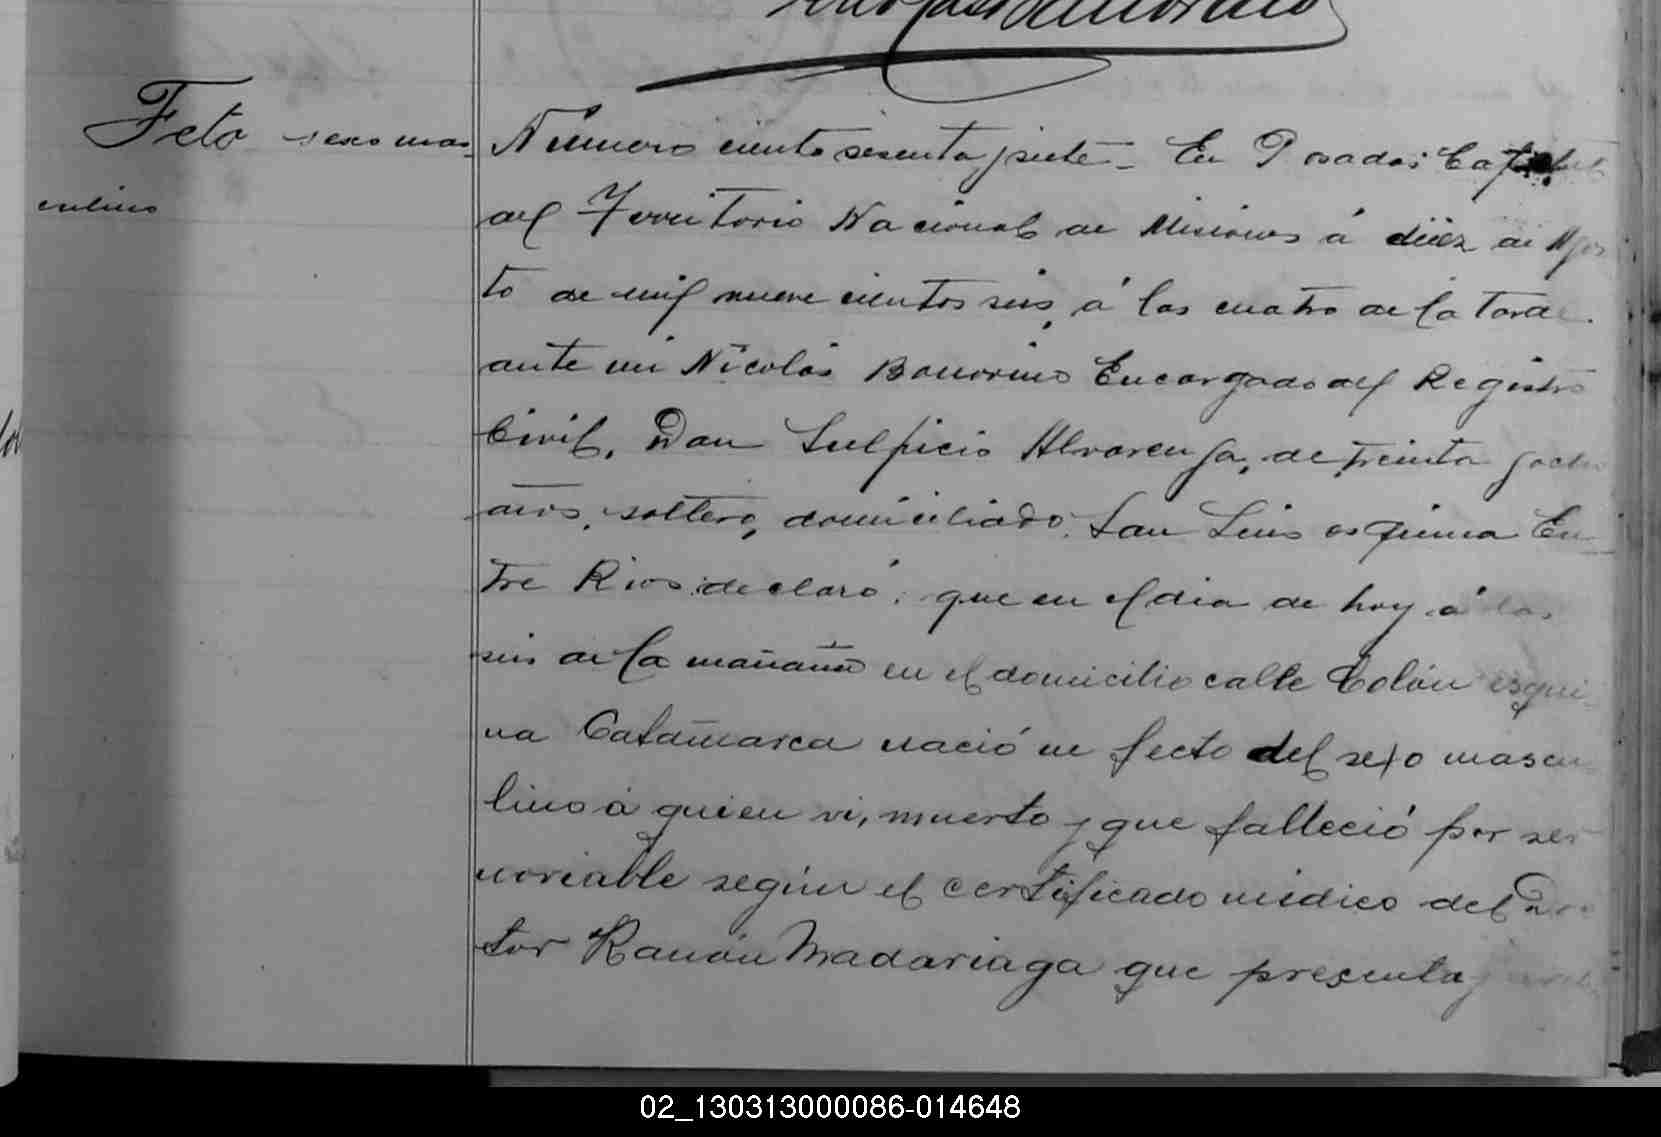 Feto sexo mas-
culino
Número ciento sesenta y siete - En Posadas Capital
del Territorio Nacional de Misiones á diez de Agos
to de mil nueve cientos seis, á las cuatro de la tarde.
ante mi Nicolás Bonorino Encargado del Registro
Civil, Don Sulpicio Alvarenga, de treinta y ocho
años, soltero, domiciliado San Luis esquina En-
tre Rios declaró: que en el dia de hoy á las
seis de la mañana en el domicilio calle Colón esqui-
na Catamarca nació un fecto del sexo mascu
lino á quien vi, muerto y que falleció por ser
noviable según el certificado médico del Doc
tor Ramón Madariaga que presenta y
02_130313000086-014648